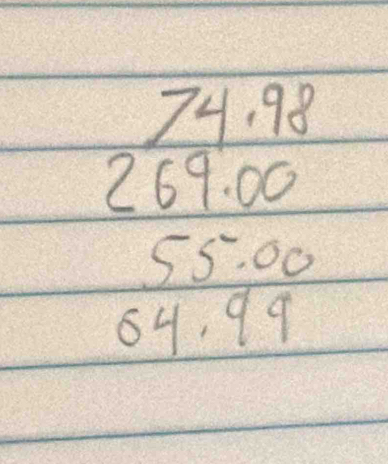 74.98
269.00
55.00
64.99